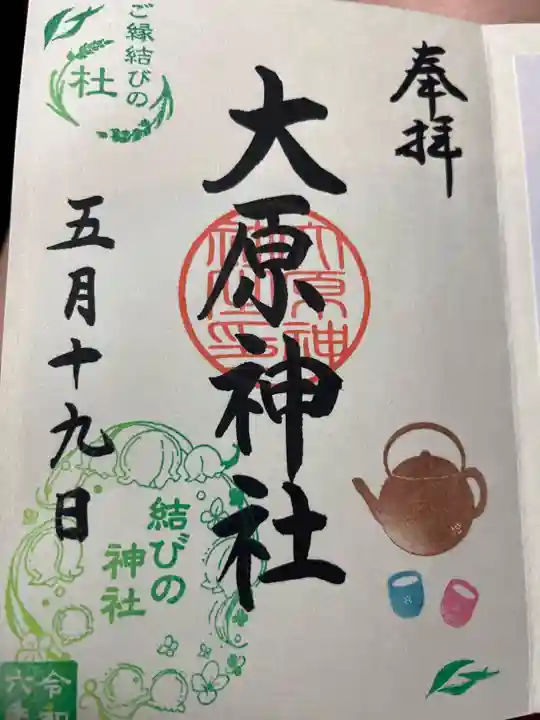 奉拝
大原神社
大原神社之印
ご縁結びの
杜
五月十九日
結びの
神社
令和
六年